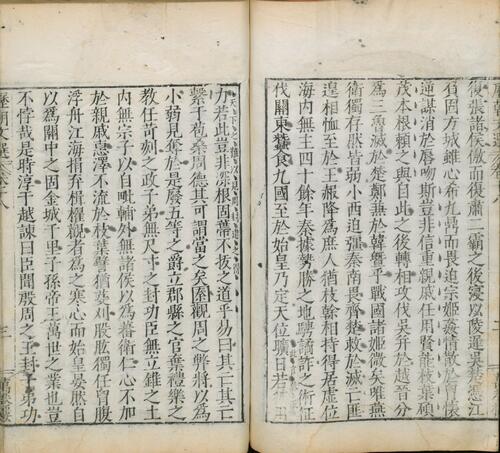 復張諸侯傲而復肅二霸之後寖以陵遲吳楚憑江
負固方城雖心希九鼎而畏迫宗姬姦情散於胷懷
逆謀消於唇吻斯豈非信重親戚任用賢能枝葉碩
茂本根賴之與自此之後轉相攻伐吳并於越晉分
為三魯滅於楚鄭兼於韓暨乎戰國諸姬微矣唯燕
衛獨存然皆弱小西迫彊秦南畏齊楚救於滅亡匪
遑相恤至於王赧降為庶人猶枝幹相持得居虛位
海內無主四十餘年秦據勢勝之地騁譎詐之術征
伐關東蠶食九國至於始皇乃定天位曠日若
力若此豈非深根固蔕不拔之道乎易曰其亡其亡
繫于苞桑周德其可謂當之矣秦觀周之弊將以為
小弱見奪於是廢五等之爵立郡縣之官棄禮樂之
教任苛刻之政子弟無尺寸之封功臣無立錐之土
內無宗子以自毗輔外無諸侯以為蕃衛仁心不加
於親戚惠澤不流於枝葉譬猶芟刈股肱獨任胷腹
浮舟江海捐棄楫櫂觀者為之寒心而始皇晏然自
以為關中之固金城千里子孫帝王萬世之業也豈
不悖哉是時淳于越諫曰臣聞殷周之王封子弟功
歷朝文選 卷八 三